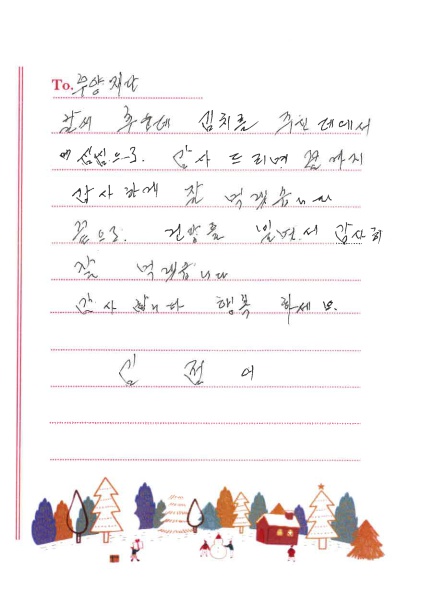 To. 무양재단
날에 추운데 김치를 주신데에서
에심심으로. 감사 드리며 끝까지
감사하게 잘 먹겠습니다
끝으로. 건강을 빌면서 감사히
잘 먹겠습니다
감사 합니다 행복 하세요.
김 점 이